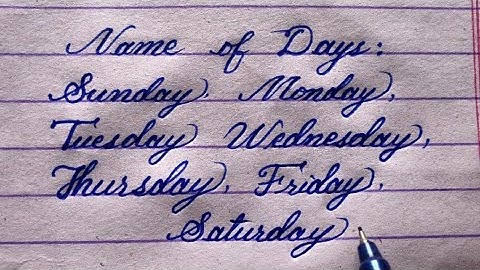 Name of Days:
Sunday, Monday,
Tuesday Wednesday,
Thursday, Friday,
Saturday